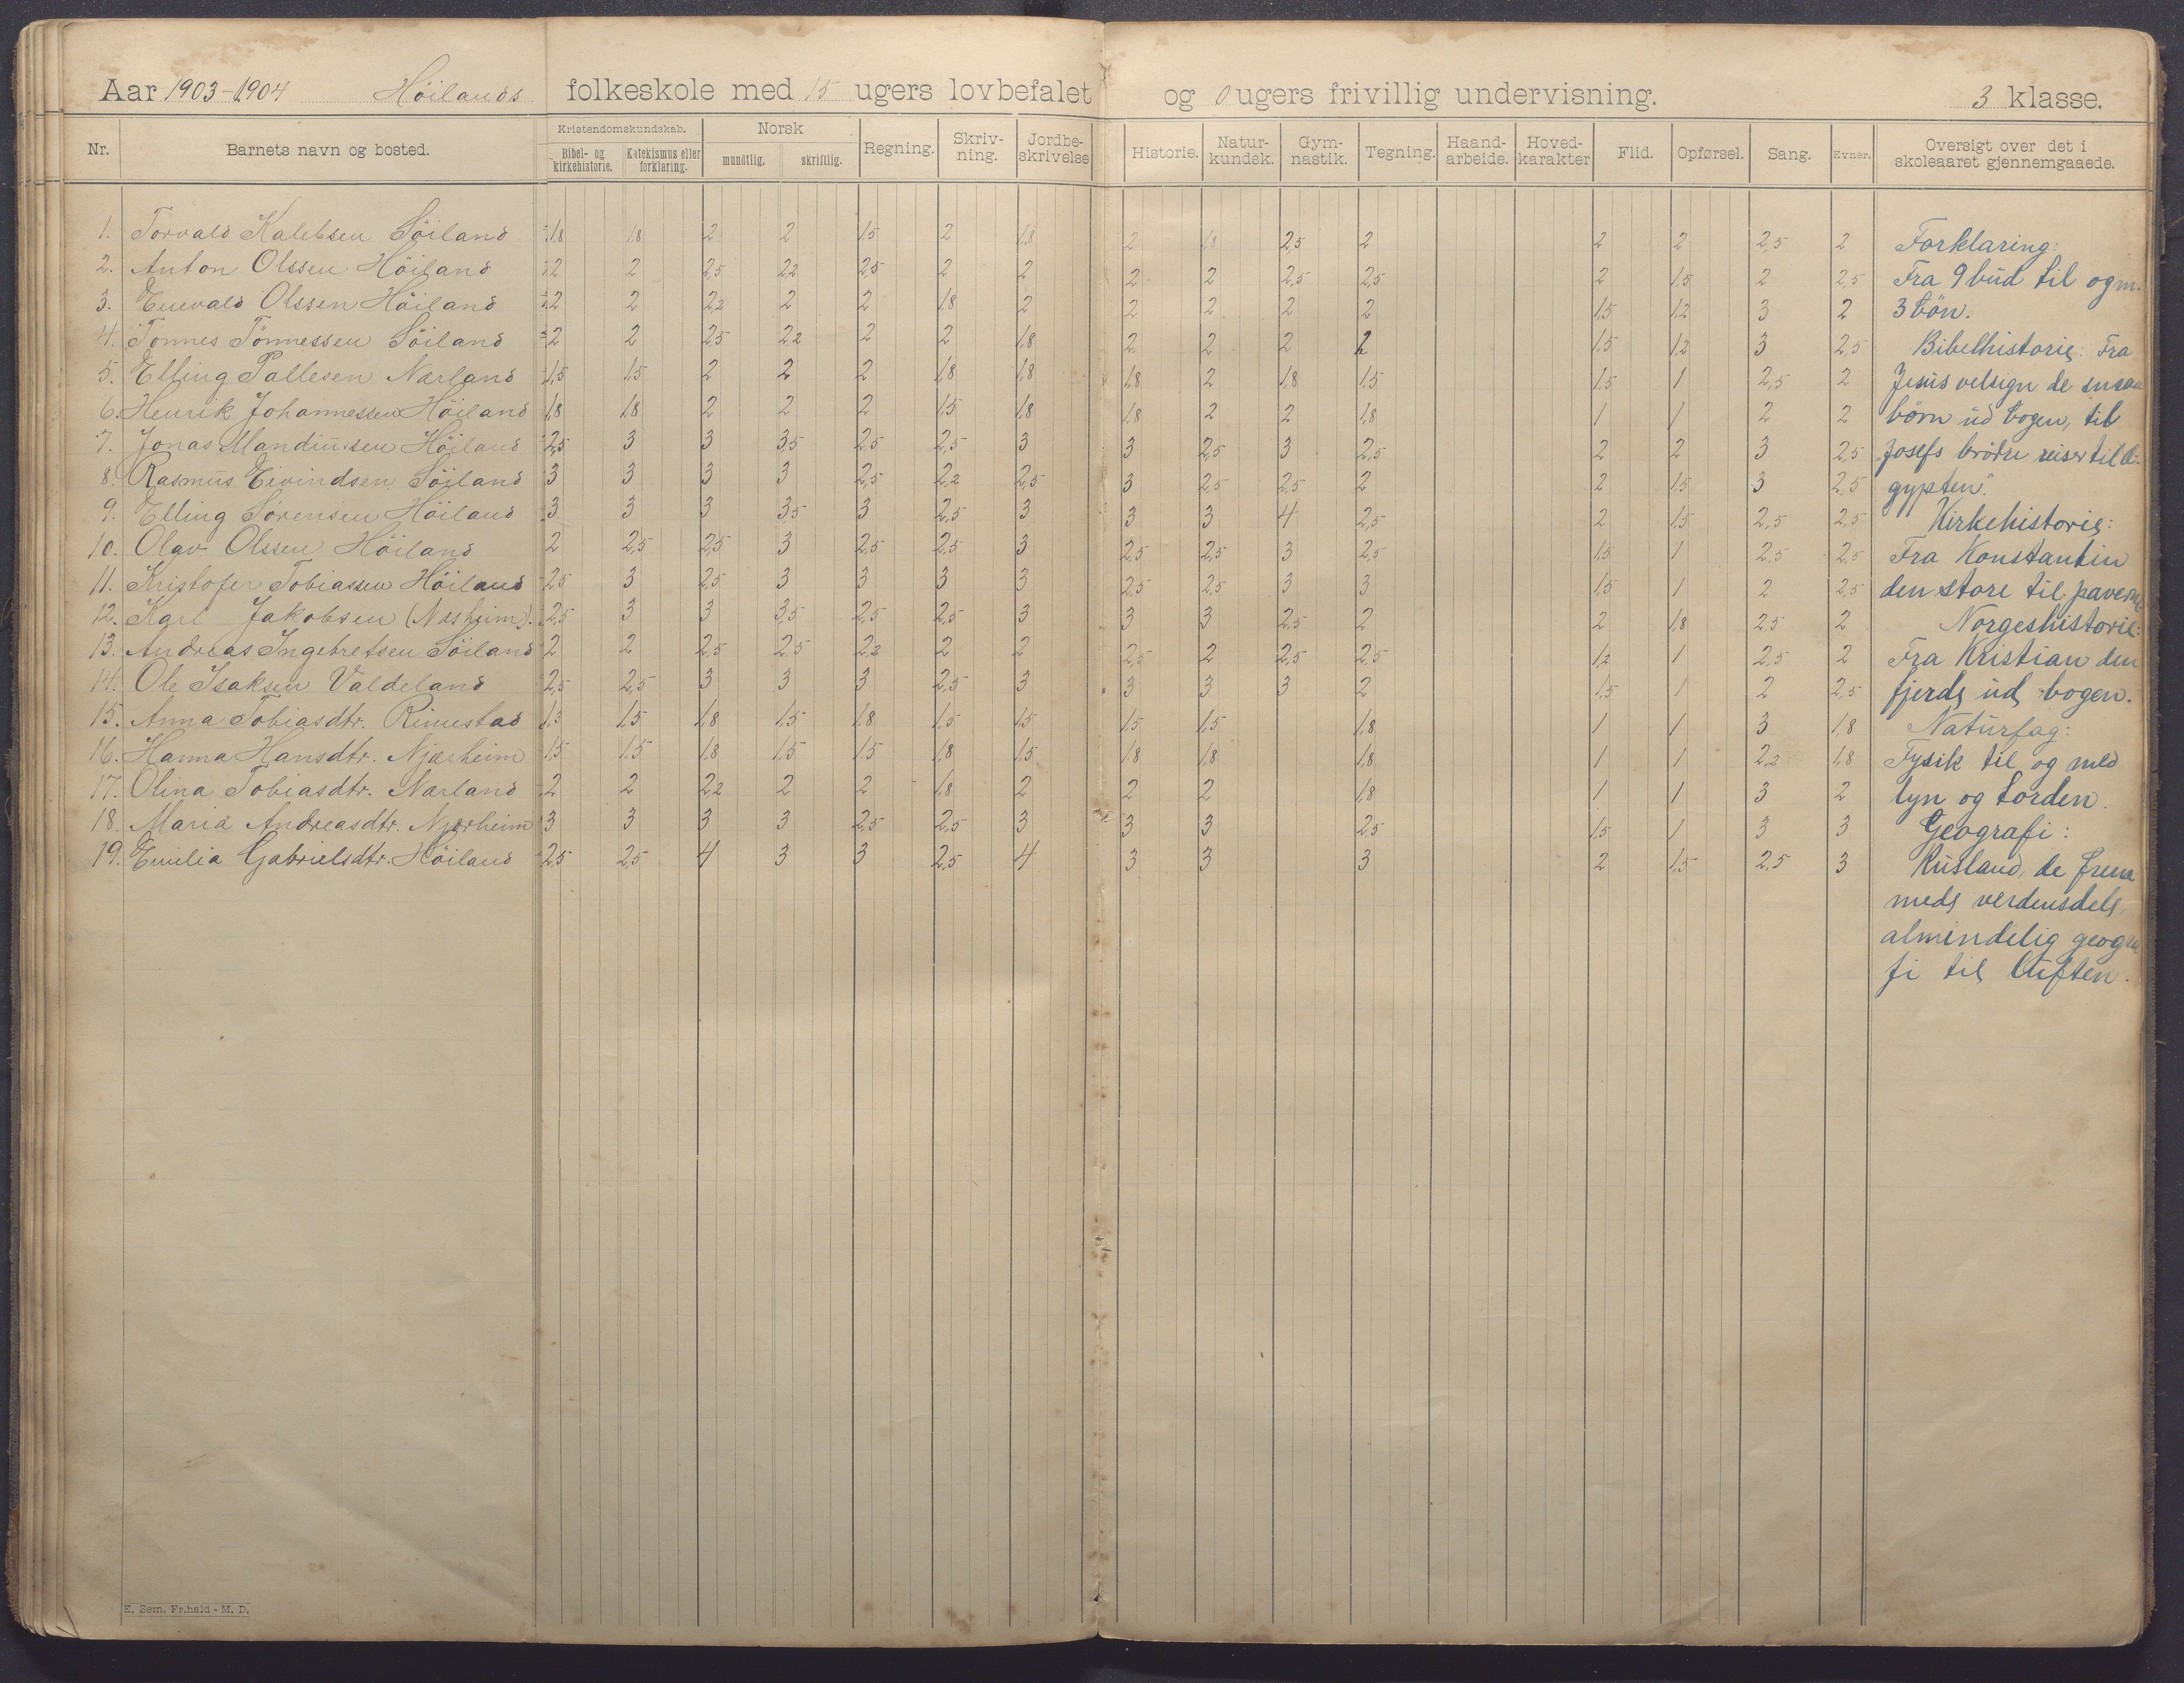 Aar 1903-1904 Höilands folkeskole med 15 ugers lovbefalet og 0 ugers frivillig undervisning. 3 klasse.
Nr. Barnets navn og bosted. Kristendomskundskab. Bibel- og kirkehistorie. Katekismus eller forklaring. Norsk mundtlig. skriftlig. Regning. Skriv-ning. Jordbe-skrivelse Historie. Natur-kundsk. Gym-nastik. Tegning. Haand-arbeide. Hoved-karakter Flid. Opførsel. Sang. Evner. Oversigt over det i skoleaaret gjennemgaaede.
1. Torvald Kalebsen Söiland 1,8 1,8 2 2 1,5 2 1,8 2 1,8 2,5 2 2 2 2,5 2 Forklaring:
2. Anton Olssen Höiland 2 2 2,5 2,2 2,5 2 2 2 2 2,5 2,5 2 1,5 2 2,5 Fra 9 bud til og m.
3. Enevald Olssen Höiland 2 2 2,2 2 2 1,8 2 2 2 2 2 1,5 1,2 3 2 3 bön.
4. Tönnes Tönnessen Söiland 2 2 2,5 2,2 2 2 1,8 2 2 2 2 1,5 1,2 3 2,5 Bibelhistorie: Fra
5. Elling Pallesen Nærland 1,5 1,5 2 2 2 1,8 1,8 1,8 2 1,8 1,5 1,5 1 2,5 2 Jesus velsign de smaa
6. Henrik Johannessen Höiland 1,8 1,8 2 2 2 1,5 1,8 1,8 2 2 1,8 1 1 2 2 börn ud bogen, til
7. Jonas Mandiussen Höiland 2,5 3 3 3,5 2,5 2,5 3 3 2,5 3 2,5 2 2 3 2,5 "Josefs brödre reiser til Æ-
8. Rasmus Eivindsen Söiland 3 3 3 3 2,5 2,2 2,5 3 2,5 2,5 2 2 1,5 3 2,5 gypten".
9. Elling Sörensen Höiland 3 3 3 3,5 3 2,5 3 3 3 4 2,5 2 1,5 2,5 2,5 Kirkehistorie:
10. Olav Olssen Höiland 2 2,5 2,5 3 2,5 2,5 3 2,5 2,5 3 2,5 1,5 1 2,5 2,5 Fra Konstantin
11. Kristofer Tobiassen Höiland 2,5 3 2,5 3 3 3 3 2,5 2,5 3 3 1,5 1 2 2,5 den store til paverne
12. Karl Jakobsen (Næsheim). 2,5 3 3 3,5 2,5 2,5 3 3 3 2,5 2 2 1,8 2,5 2 Norgeshistorie:
13. Andreas Ingebretsen Söiland 2 2 2,5 2,5 2,2 2 2 2,5 2 2,5 2,5 1,2 1 2,5 2 Fra Kristian den
14. Ole Isaksen Valdeland 2,5 2,5 3 3 3 2,5 3 3 3 3 2 1,5 1 2 2,5 fjerde ud bogen.
15. Anna Tobiasdtr. Rimestad 1,3 1,5 1,8 1,5 1,8 1,5 1,5 1,5 1,5 1,8 1 1 3 1,8 Naturfag:
16. Hanna Hansdtr. Njærheim 1,5 1,5 1,8 1,5 1,5 1,8 1,5 1,8 1,8 1,8 1 1 2,2 1,8 Fysik til og med
17. Olina Tobiasdtr. Nærland 2 2 2,2 2 2 1,8 2 2 2 1,8 1 1 3 2 lyn og torden.
18. Maria Andreasdtr. Njærheim 3 3 3 3 2,5 2,5 3 3 3 2,5 1,5 1 3 3 Geografi:
19. Emilia Gabrielsdtr. Höiland 2,5 2,5 4 3 3 2,5 4 3 3 3 2 1,5 2,5 3 Rusland, de frem-
mede verdensdele,
almindelig geogra
fi til luften.
E. Sem. Fr.hald - M. D.